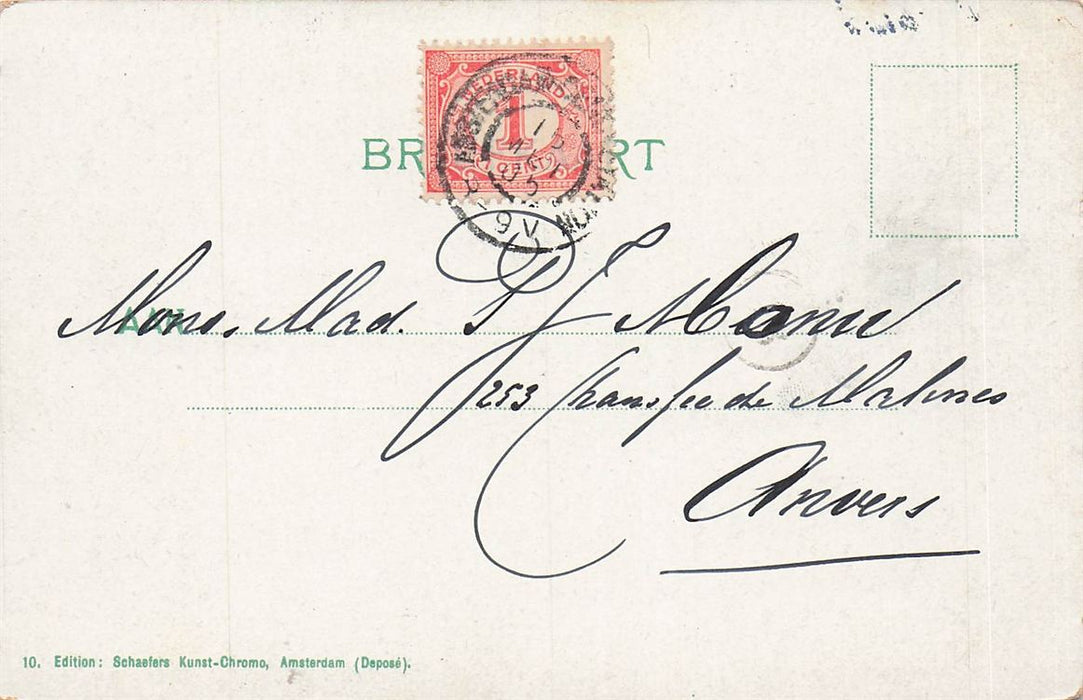 NEDERLAND
1
1 CENT
BR RT
9 V
AAN
Mons. Mad. P J
253 de Malines
Anvers
10. Edition: Schaefers Kunst-Chromo, Amsterdam (Deposé).